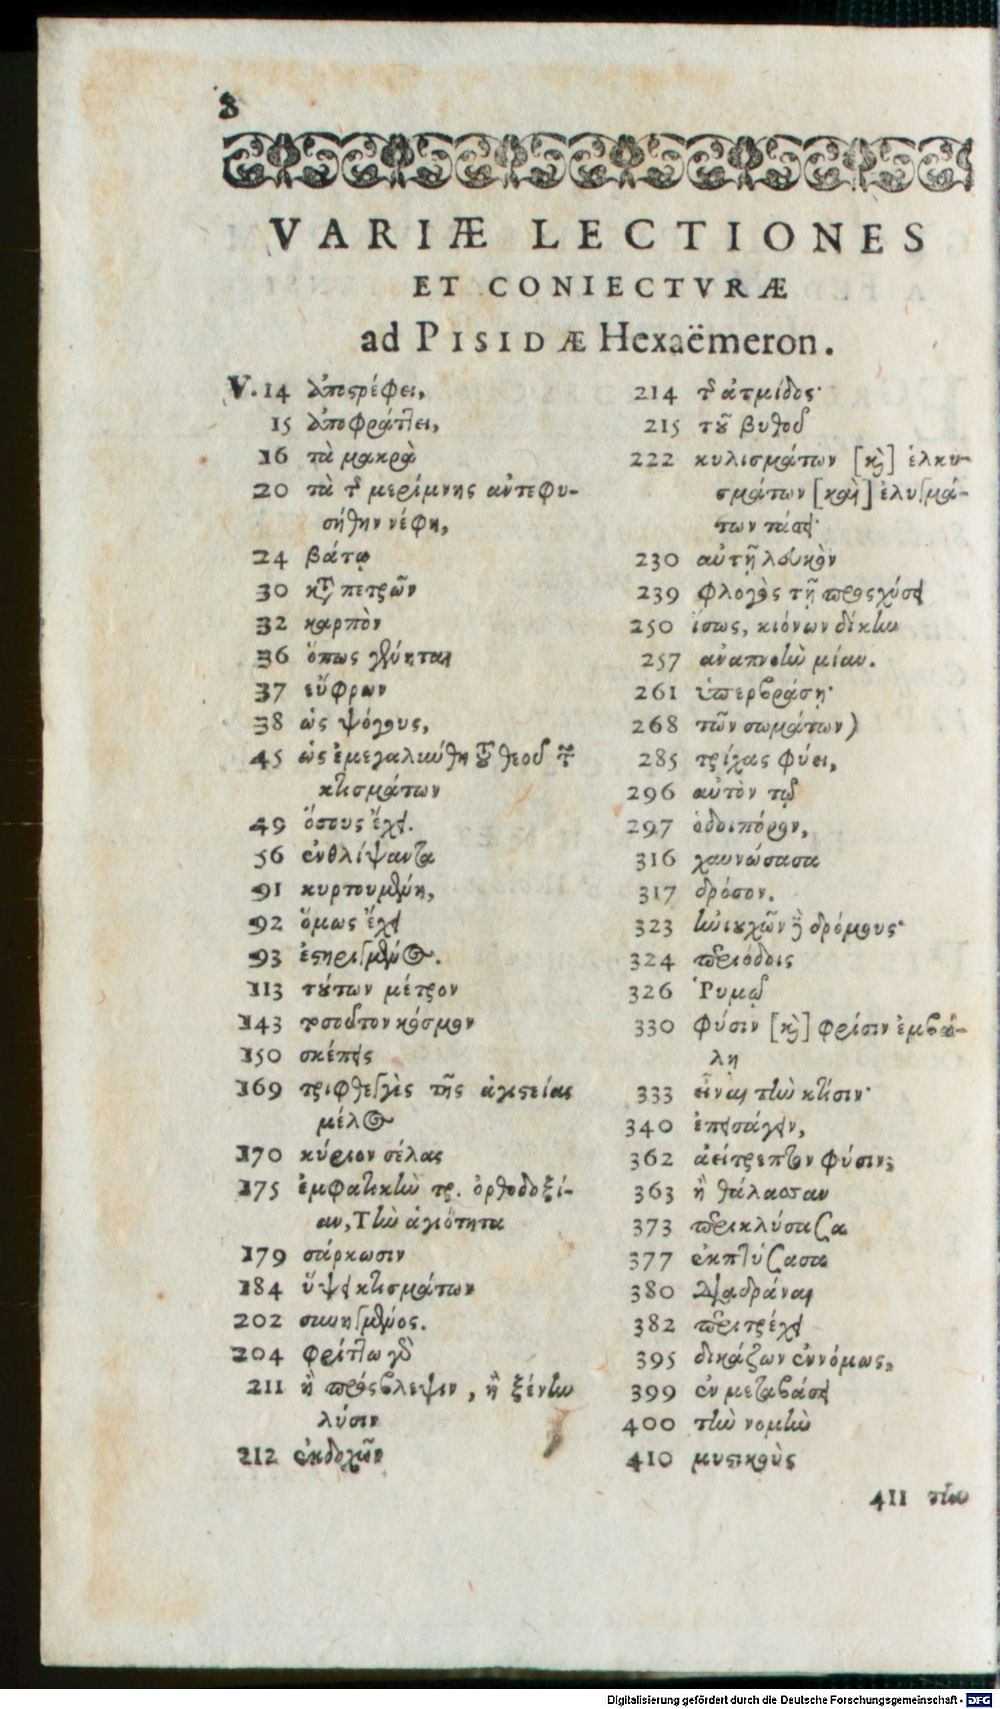 8
VARIÆ LECTIONES
ET CONIECTVRÆ
ad PISIDÆ Hexaëmeron.
V. 14 ἀποστρέφει,
15 ἀποφράττει,
16 τὰ μακρὰ
20 τὰ τῆς μερίμνης ἀντεφυ-
σήθην νέφη,
24 βάτῳ
30 κατὰ πετρῶν
32 καρπὸν
36 ὅπως γένηται
37 εὔφρων
38 ὡς ψόγους,
45 ὡς ἐμεγαλύνθη τοῦ θεοῦ τῶν
κτισμάτων
49 ὅσους ἔχει.
56 ἐνθλίψαντα
91 κυρτουμένη,
92 ὅμως ἔχει
93 ἐστηριγμένος.
113 τούτων μέτρον
143 τοσοῦτον κόσμον
150 σκέπεις
169 τριφθεγγὲς τῆς ἁγιστείας
μέλος
170 κύριον σέλας
175 ἐμφατικὴν τρ. ὀρθοδοξί-
αν, Τὴν ἁγιότητα
179 σάρκωσιν
184 ὕψει κτισμάτων
202
204 φρίττω γὰρ
211 ἢ πρόσβλεψιν, ἢ ξένην
λύσιν
212 ἐκδοχῶν
214 τῆς ἀτμίδος·
215 τοῦ βυθοῦ
222 κυλισμάτων [καὶ] ἑλκυ-
σμάτων [καὶ] ἑλυσμά-
των τάσει·
230 αὐτῇ λευκὸν
239 φλογὸς τῇ προσχύσει
250 ἴσως, κιόνων δίκην
257 ἀναπνοὴν μίαν.
261 ὑπερβράσῃ·
268 τῶν σωμάτων)
285 τρίχας φύει,
296 αὐτὸν τῷ
297 ὁδοιπόρον,
316 χαυνώσασα
317 δρόσον.
323 ἡνιοχῶν τοὺς δρόμους·
324 περιόδοις
326 Ῥυμῷ
330 φύσιν [καὶ] φρίσιν ἐμβά-
λῃ
333 εἶναι τὴν κτίσιν·
340 ἐπεισάγειν,
362 ἀείτρεπτον φύσιν;
363 ἢ θάλασσαν
373 περικλύσασα
377 ἐκπτύσασα
380 διαδρᾶναι
382 περιτρέχει
395 δικάζων ἐννόμως,
399 ἐν μεταβάσει
400 τὴν νομὴν
410 μυστικοὺς
411 τὴν
Digitalisierung gefördert durch die Deutsche Forschungsgemeinschaft - DFG